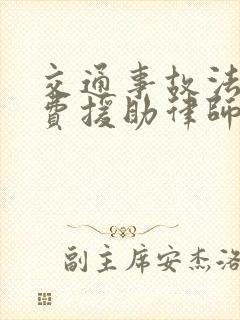 交通事故法
费援助律師
副主席安杰洛